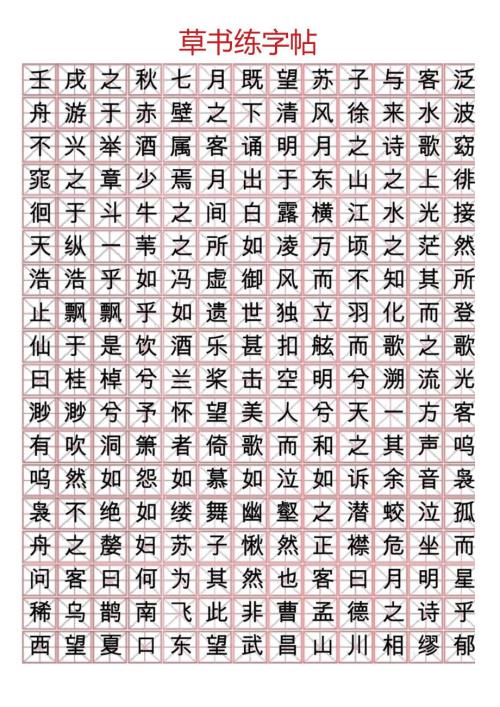 草书练字帖
壬戌之秋七月既望苏子与客泛
舟游于赤壁之下清风徐来水波
不兴举酒属客诵明月之诗歌窈
窕之章少焉月出于东山之上徘
徊于斗牛之间白露横江水光接
天纵一苇之所如凌万顷之茫然
浩浩乎如冯虚御风而不知其所
止飘飘乎如遗世独立羽化而登
仙于是饮酒乐甚扣舷而歌之歌
曰桂棹兮兰桨击空明兮溯流光
渺渺兮予怀望美人兮天一方客
有吹洞箫者倚歌而和之其声呜
呜然如怨如慕如泣如诉余音袅
袅不绝如缕舞幽壑之潜蛟泣孤
舟之嫠妇苏子愀然正襟危坐而
问客曰何为其然也客曰月明星
稀乌鹊南飞此非曹孟德之诗乎
西望夏口东望武昌山川相缪郁